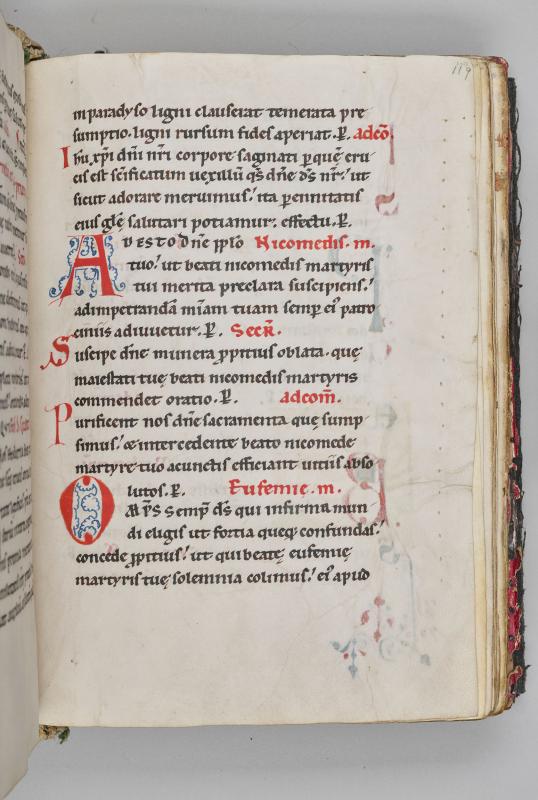 119
in paradyso ligni clauserat temerata pre
sumptio. ligni rursum fides aperiat. P̲. adcō.
Ihu xp̄i dn̄i nr̄i corpore saginati p̱ quē cru
cis est sc̄ificatum uexillū q̄s dn̄e ds̄ nr̄. ut
sicut adorare meruimus. ita p̱ennitatis
eius glē salutari potiamur. effectu. P̲.
ADESTO Dn̄e pplo Nicomedis. m.
tuo. ut beati nicomedis martyris
tui merita preclara suscipiens.
ad impetrandā mīam tuam semp̱ eiꝰ patro
ciniis adiuuetur. P̲. Secr̄.
Suscipe dn̄e munera ꝓpitius oblata. que
maiestati tuę beati nicomedis martyris
commendet oratio. P̲. adcom̄.
Purificent nos dn̄e sacramenta que sump
simus. & intercedente beato nicomede
martyre tuo a cunctis efficiant uitiis abso
lutos. P̲. Eufemię. m.
OMPS Semp̱ ds̄ qui infirma mun
di eligis ut fortia queq; confundas.
concede ꝓpitius. ut qui beatę eufemię
martyris tuę solemnia colimus. eiꝰ apud